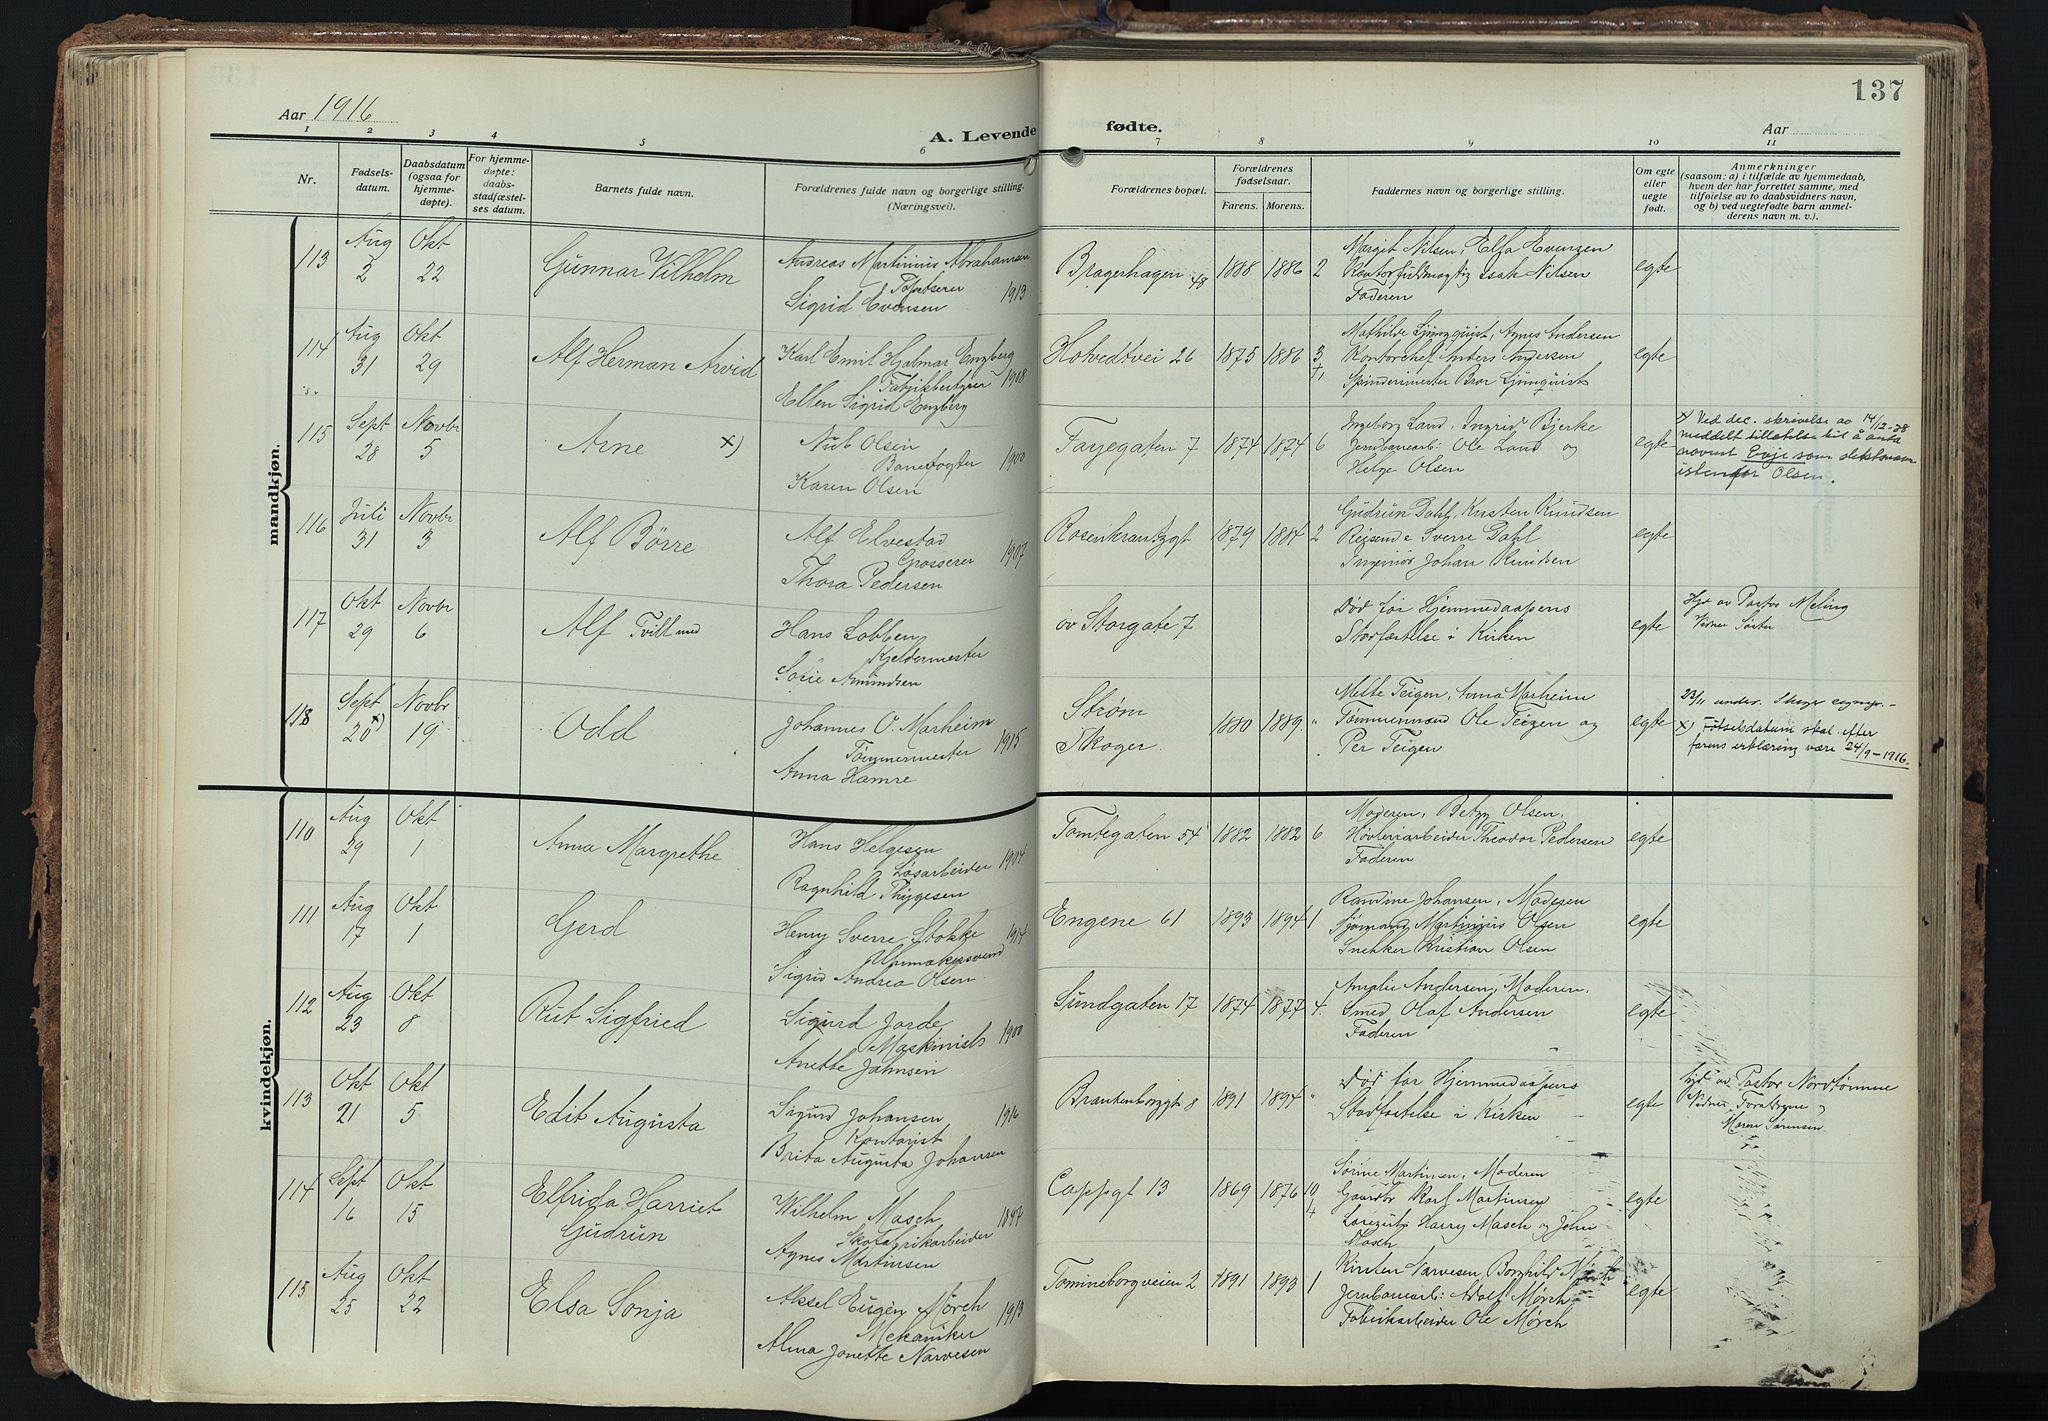 137
Aar 1916
A. Levende fødte.
Aar
1 2 3 4 5 6 7 8 9 10 11
Nr.
Fødsels-datum.
Daabsdatum (ogsaa for hjemme-døpte).
For hjemme-døpte: daabs-stadfæstel-ses datum.
Barnets fulde navn.
Forældrenes fulde navn og borgerlige stilling. (Næringsvei).
Forældrenes bopæl.
Forældrenes fødselsaar.
Farens. Morens.
Faddernes navn og borgerlige stilling.
Om egte eller uegte født.
Anmerkninger
(saasom: a) i tilfælde av hjemmedaab,
hvem der har forrettet samme, med
tilføielse av to daabsvidners navn,
og b) ved uegtefødte barn anmel-
derens navn m. v.).
mandkjøn.
113 Aug 2 Okt 22 Gunnar Vilhelm
Andreas Martinius Abrahamsen
Tapetserer 1913
Sigrid Evensen
Bragerhagen 48 1888 1886 2
Margit Nilsen, Elfa Evensen
Kontorfuldmægtig Isak Nilsen
Faderen
egte
114 Aug 31 Okt 29 Alf Herman Arvid
Karl Emil Hjalmar Enzberg
Fabrikbestyrer 1908
Ellen Sigrid Enzberg
Hotvedtvei 26 1875 1886 3 + 1
Mathilde Ljungquist, Agnes Andersen
Kontorchef Anders Andersen
Spinderimester Bror Ljungquist
egte
115 Sept 28 Novbr 5 Arne x)
Nub Olsen
Banefogter 1900
Karen Olsen
Farjegaten 7 1874 1874 6
Ingeborg Land, Ingrid Bjerke
Jernbanearb. Ole Land og
Helge Olsen
egte
x) Ved dec. skrivelse av 14/12-28
meddelt tillatelse til å anta
navnet Evje som slektsnavn
istenfor Olsen.
116 Juli 31 Novbr 3 Alf Børre
Alf Elvestad
Grosserer 1907
Thora Pedersen
Rosenkrantzgt 1879 1884 2
Gudrun Dahl, Kirsten Knudsen
Reisende Sverre Dahl
Ingeniør Johan Knudsen
egte
117 Okt 29 Novbr 6 Alf Tvilling
Hans Lobben
Kjeldermester
Sofie Amundsen
øv Storgate 7
Død før Hjemmedaapens
Stadfæstelse i Kirken
egte
Hjd av Pastor Meling
118 Sept 20 x) Novbr 19 Odd
Johannes O. Marheim
Tømmermester 1915
Anna Hamre
Strøm
Skoger 1880 1889 "
Mette Teigen, Anna Marheim
Tømmermand Ole Teigen og
Per Teigen
egte
23/11 under. Skoger
x) Fødselsdatum skal efter
farens erklæring være 24/9-1916.
kvindekjøn.
110 Aug 29 Okt 1 Anna Margrethe
Hans Helgesen
Løsarbeider 1904
Ragnhild Thygesen
Tomtegaten 54 1882 1882 6
Moderen, Betzy Olsen,
Høvleriarbeider Theodor Pedersen
Faderen
egte
111 Aug 17 Okt 1 Gerd
Henry Sverre Stokke 1914
Uhrmakersvend
Sigrid Andrea Olsen
Engene 61 1893 1894 1
Randine Johansen, Moderen
Sjømand Martinius Olsen
Snekker Kristian Olsen
egte
112 Aug 23 Okt 8 Rut Sigfried
Sigurd Jorde
Maskinist 1900
Anette Jahnsen
Sundgaten 17 1874 1877 4
Amalie Andersen, Moderen,
Smed Olaf Andersen
Faderen
egte
113 Okt 21 Okt 5 Edit Augusta
Sigurd Johansen 1916
Kontorist
Brita Augusta Johansen
Brankenborggt 8 1891 1894 "
Død før Hjemmedaapens
Stadfæstelse i Kirken
egte
hjd av Pastor Nordtømme
Maren Sørensen
114 Sept 16 Okt 15 Elfrida Harriet
Gudrun
Wilhelm Masch 1897
Skofabrikarbeider
Agnes Martinsen
Cappgt 13 1869 1876 10 + 4
Sørine Martinsen, Moderen
Gaardbr Karl Martinsen
Harry Masch og John
Masch
egte
115 Aug 25 Okt 22 Elsa Sonja
Aksel Eugèn Mörch
Mekaniker 1913
Alma Jonette Narvesen
Tomineborgveien 2 1891 1893 1
Kirsten Narvesen, Borghild Mørch
Jernbanearb. Adolf Mørch
Fabrikarbeider Ole Mørch
egte